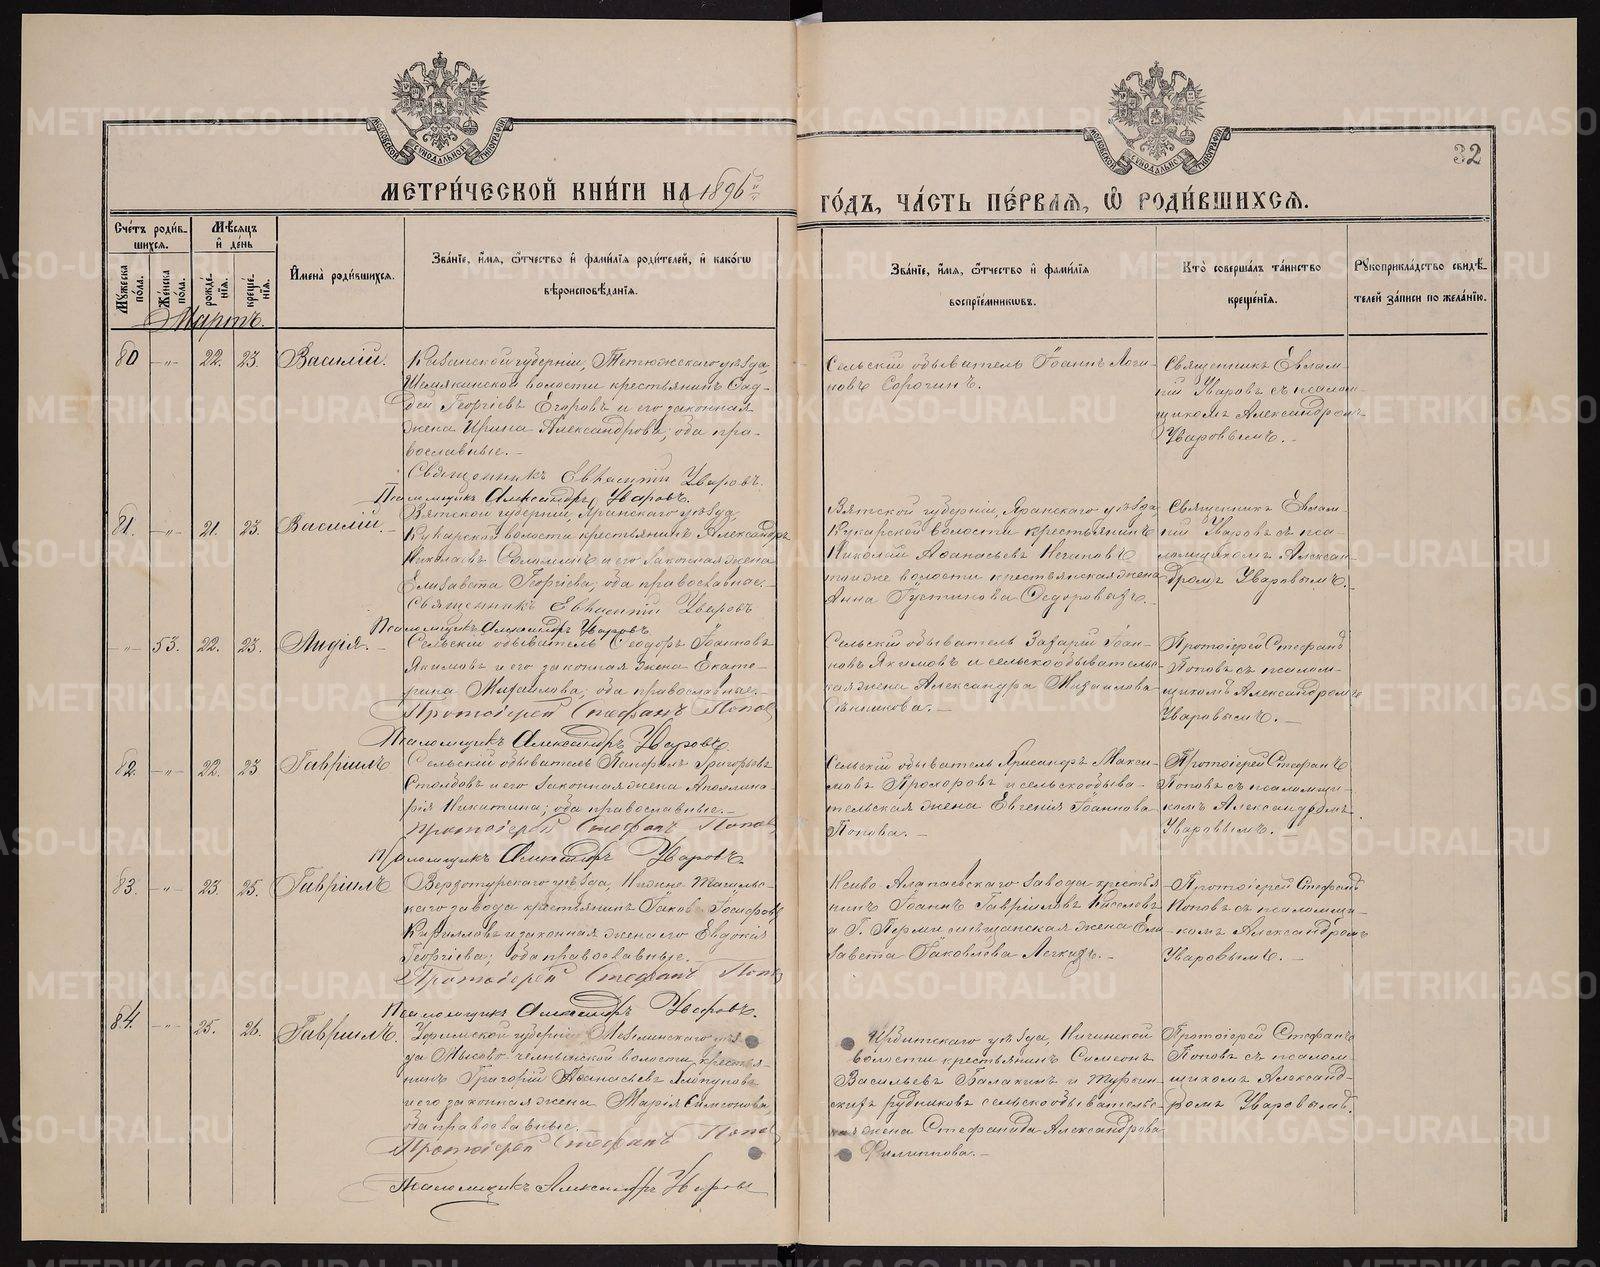 МЕТРИ́ЧЕСКОЙ КНИ́ГИ НА 1896й
ГО́ДЪ, ЧА́СТЬ ПЕ́РВАѦ, Ѡ҆ РОДИ́ВШИХСѦ.
32
Сче́тъ роди́в-
шихся.
Мѣ́сяцъ
и҆ де́нь
Мꙋ́жеска по́ла.
Же́нска по́ла.
рожде́-
нїѧ.
креще́-
нїѧ.
И҆мена̀ роди́вшихся.
Зва́нїе, и҆́мя, ѻ҆́тчество и҆ фами́лїя роди́телей, и҆ како́гѡ
вѣроисповѣ́данїя.
Зва́нїе, и҆́мя, ѻ҆́тчество и҆ фами́лїя
воспрїе́мникѡвъ.
Кто̀ соверша́лъ та́инство
креще́нїя.
Рꙋкоприкла́дство свидѣ́-
телей за́писи по жела́нїю.
Мартъ.
80 -"- 22. 23. Василій.
Казанской губерніи, Тетюжскаго уѣзда,
Шемякинской волости крестьянинъ
Георгіевъ Егоровъ и его законная
жена Ирина Александрова, оба пра-
вославные.-
Священникъ Евѳимій Уваровъ.
Псаломщикъ Александръ Уваровъ.
Сельскій обыватель Іоаннъ Логи-
новъ Сорочинъ.
Священникъ Евлам-
пій Уваровъ съ псалом-
щикомъ Александромъ
Уваровымъ.-
81. -"- 21. 23. Василій.-
Вятской губерніи, Яранскаго уѣзда,
Кукарской волости крестьянинъ Александръ
Николаевъ и его законная жена
Елизавета Георгіева, оба православные.-
Священникъ Уваровъ
Псаломщикъ Александръ Уваровъ
Вятской губерніи, Яранскаго уѣзда
Кукарской волости крестьянинъ
Николай Аѳанасьевъ
тояже волости крестьянская жена
Анна Іустинова Ѳедоровыхъ.-
Священникъ Евлам-
пій Уваровъ съ пса-
ломщикомъ Алексан-
дромъ Уваровымъ.-
-"- 53. 22. 23. Лидія.-
Сельскій обыватель Ѳеодоръ Іоанновъ
Якимовъ и его законная жена Екате-
рина Михаилова, оба православные.-
Протоіерей Стефанъ Попов
Псаломщикъ Александръ Уваровъ.
Сельскій обыватель Захарій Іоан-
новъ Якимовъ и сельскообыватель-
ская жена Александра Михаилова
Протоіерей Стефанъ
Поповъ съ псалом-
щикомъ Александромъ
Уваровымъ.-
82. -"- 22. 23 Гавріилъ
Сельскій обыватель Григорьевъ
Столбовъ и его законная жена Аполлина-
рія Никитина; оба православные.-
Протоіерей Стефанъ Попов
Псаломщикъ Александръ Уваровъ.
Сельскій обыватель Макси-
мовъ Прохоровъ и сельскообыва-
тельская жена Евгенія Іоаннова
Попова.-
Протоіерей Стефанъ
Поповъ съ псаломщи-
комъ Александромъ
Уваровымъ.-
83. -"- 23. 25. Гавріилъ
Верхотурскаго уѣзда, Нижне-Тагильс-
каго завода крестьянинъ Іаковъ Іосифовъ
Кирилловъ и законная жена его Евдокія
Георгіева; оба православные.
Протоіерей Стефанъ Попов
Псаломщикъ Александръ Уваровъ.
Алапаевскаго завода крестья-
нинъ Іоаннъ Гавріиловъ Киселевъ
и Г. Перми мѣщанская жена Ели
завета Іаковлева Легкихъ.-
Протоіерей Стефанъ
Поповъ съ псаломщи-
комъ Александромъ
Уваровымъ.-
84. -"- 25. 26. Гавріилъ.
Уфимской губерніи Мензелинскаго уѣз-
да волости, крестья-
нинъ Григорій Аѳанасьевъ Хлопуновъ
и его законная жена Марія Симеонова
оба православные.
Протоіерей Стефанъ Попов
Псаломщикъ Александръ Уваровъ
Ирбитскаго уѣзда, Ницинской
волости крестьянинъ Симеонъ
Васильевъ Балакинъ и Турьин-
скихъ рудниковъ сельскообыватель-
ская жена Стефанида Александрова
Филиппова.-
Протоіерей Стефанъ
Поповъ съ псалом-
щикомъ Александ-
ромъ Уваровымъ.
METRIKI.GASO-URAL.RU